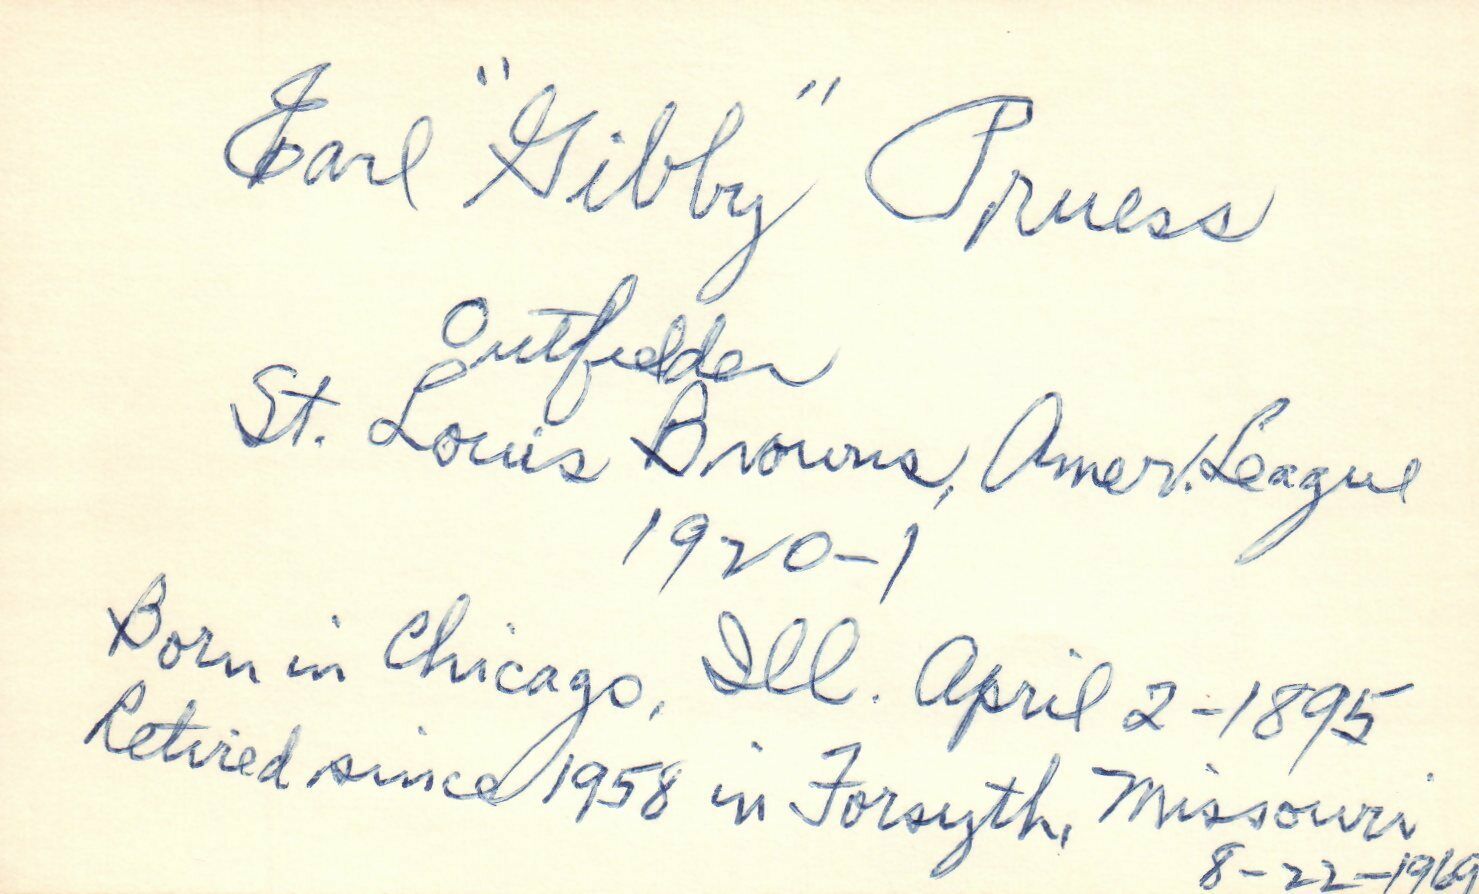 Earl "Gibby" Pruess
Outfielder
St. Louis Browns, Amer. League
1920-1
Born in Chicago, Ill. April 2-1895
Retired since 1958 in Forsyth, Missouri
8-22-1969